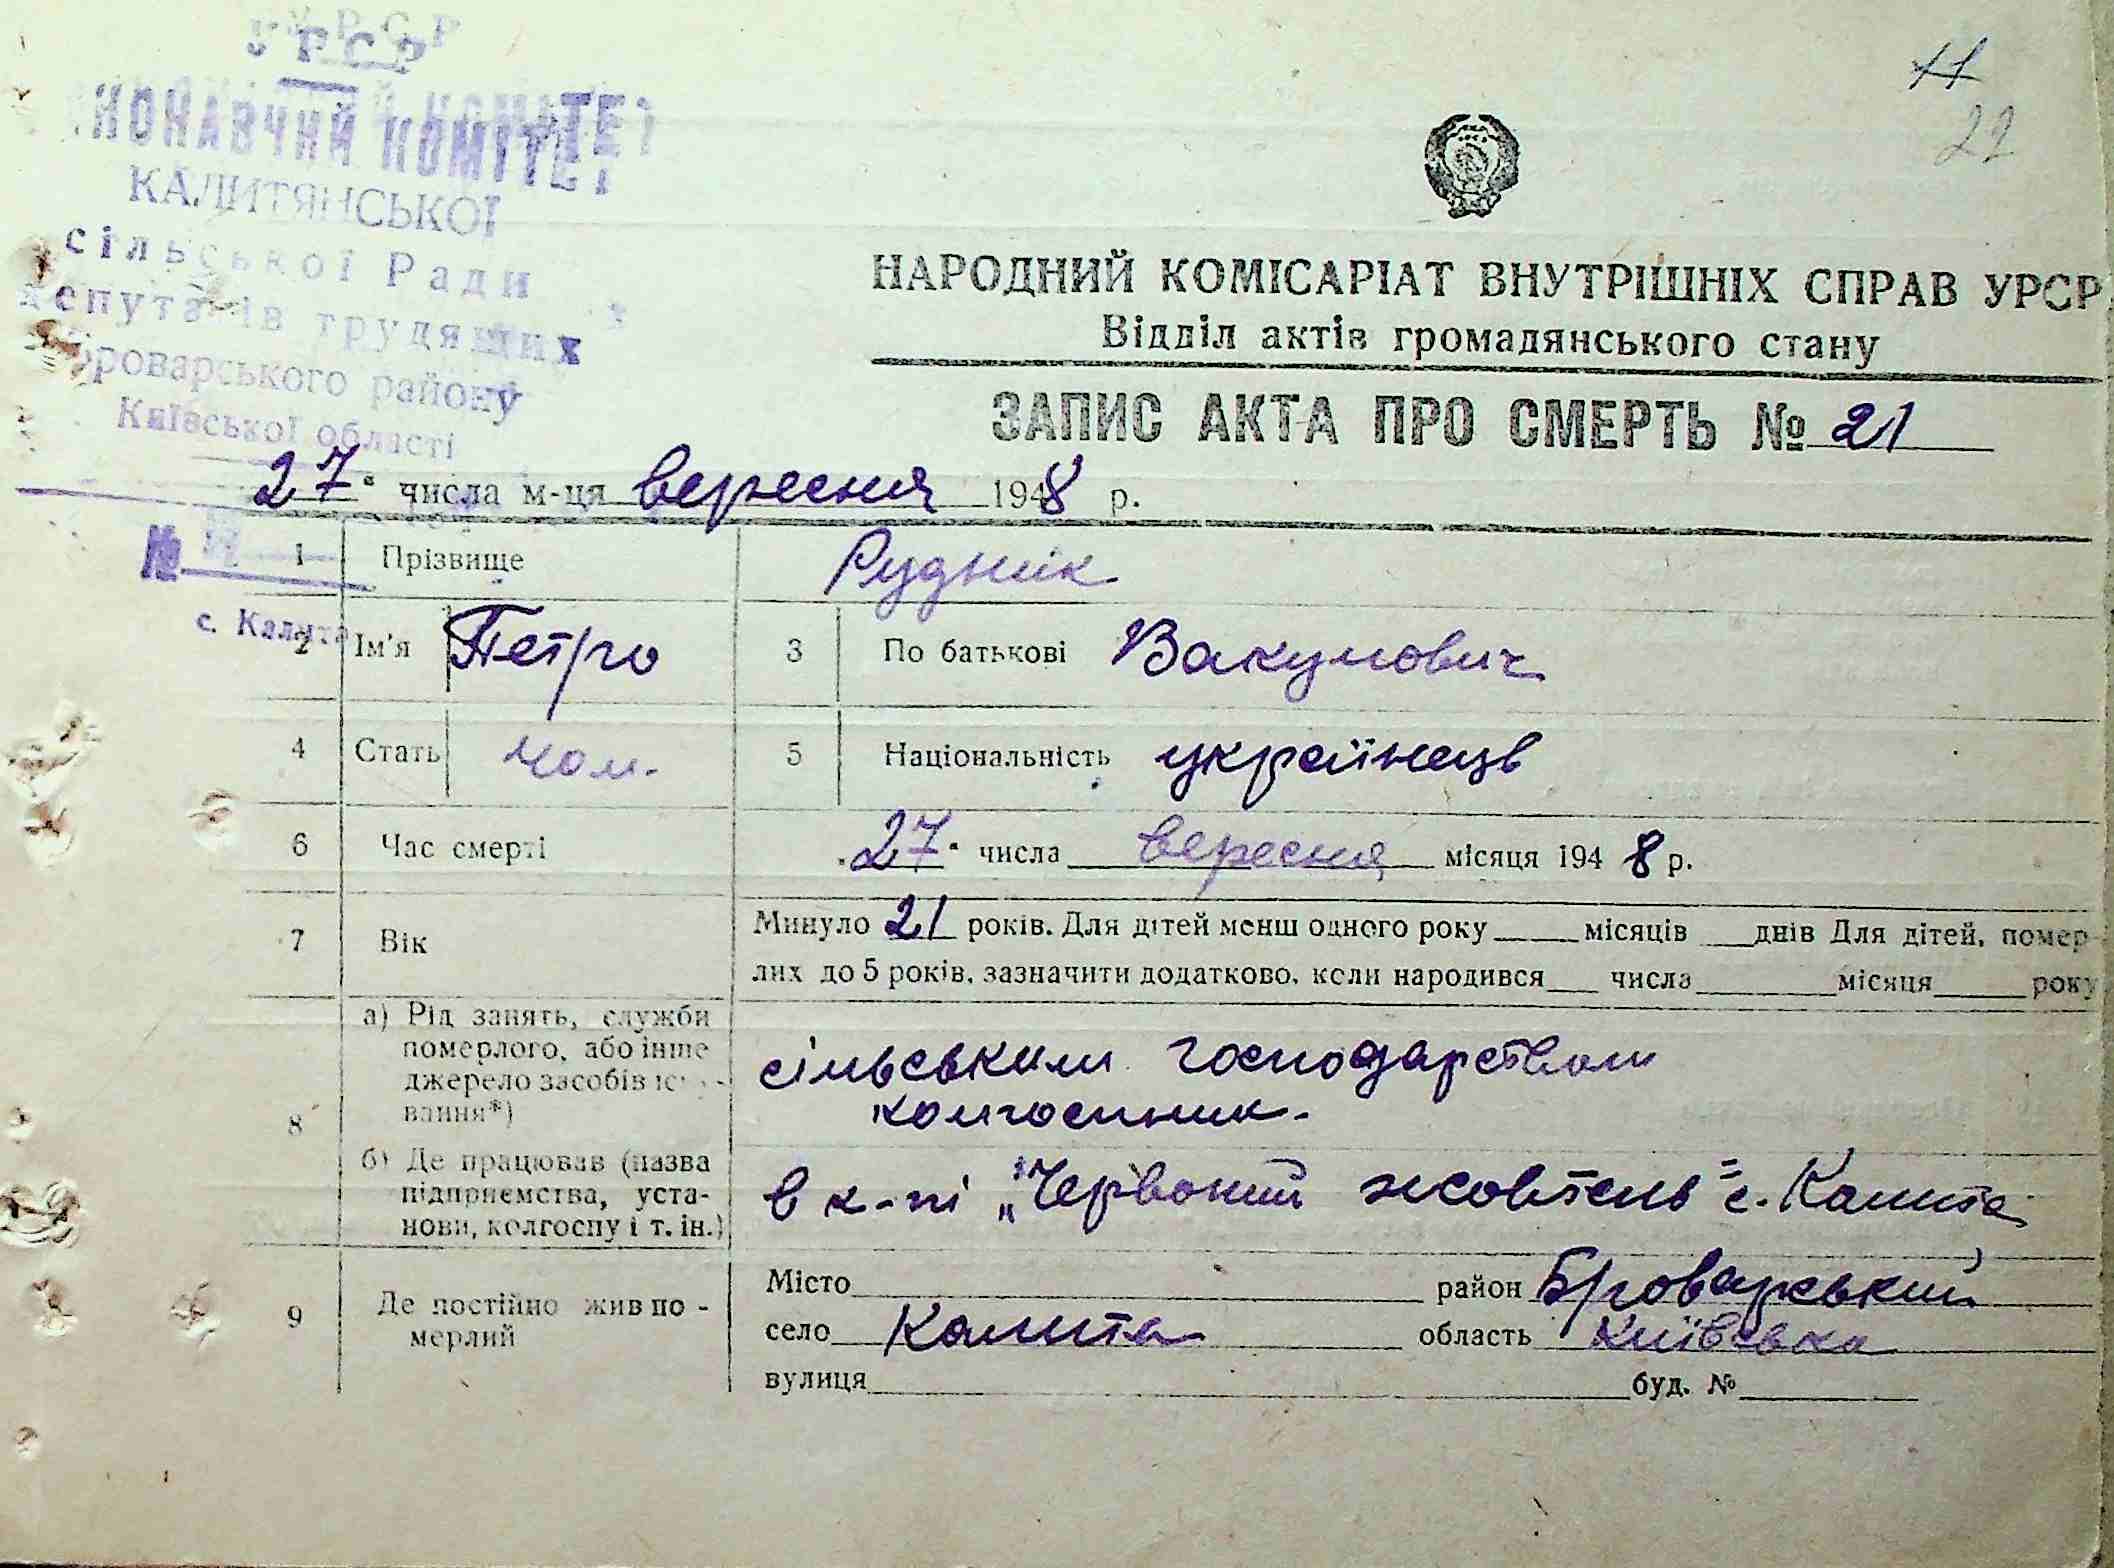 УРСР
ВИКОНАВЧИЙ КОМІТЕТ
КАЛИТЯНСЬКОЇ
сільської Ради
депутатів трудящих
Броварського району
Київської області
№
с. Калита
11
22
НАРОДНИЙ КОМІСАРІАТ ВНУТРІШНІХ СПРАВ УРСР
Відділ актів громадянського стану
ЗАПИС АКТА ПРО СМЕРТЬ № 21
27 числа м-ця вересня 1948 р.
1 Прізвище Рудник
2 Ім'я Петро 3 По батькові Вакумович
4 Стать чол. 5 Національність українець
6 Час смерті 27 числа вересня місяця 1948 р.
7 Вік Минуло 21 років. Для дітей менш одного року місяців днів Для дітей, помер-
лих до 5 років, зазначити додатково, коли народився числа місяця року
8 а) Рід занять, служби
померлого, або інше
джерело засобів існу-
вання*)
сільським господарством
колгоспник.
б) Де працював (назва
підприємства, уста-
нови, колгоспу і т. ін.)
в к-пі „Червоний жовтень" с. Калита
9 Де постійно жив по-
мерлий
Місто район Броварський
село Калита область Київська
вулиця буд. №